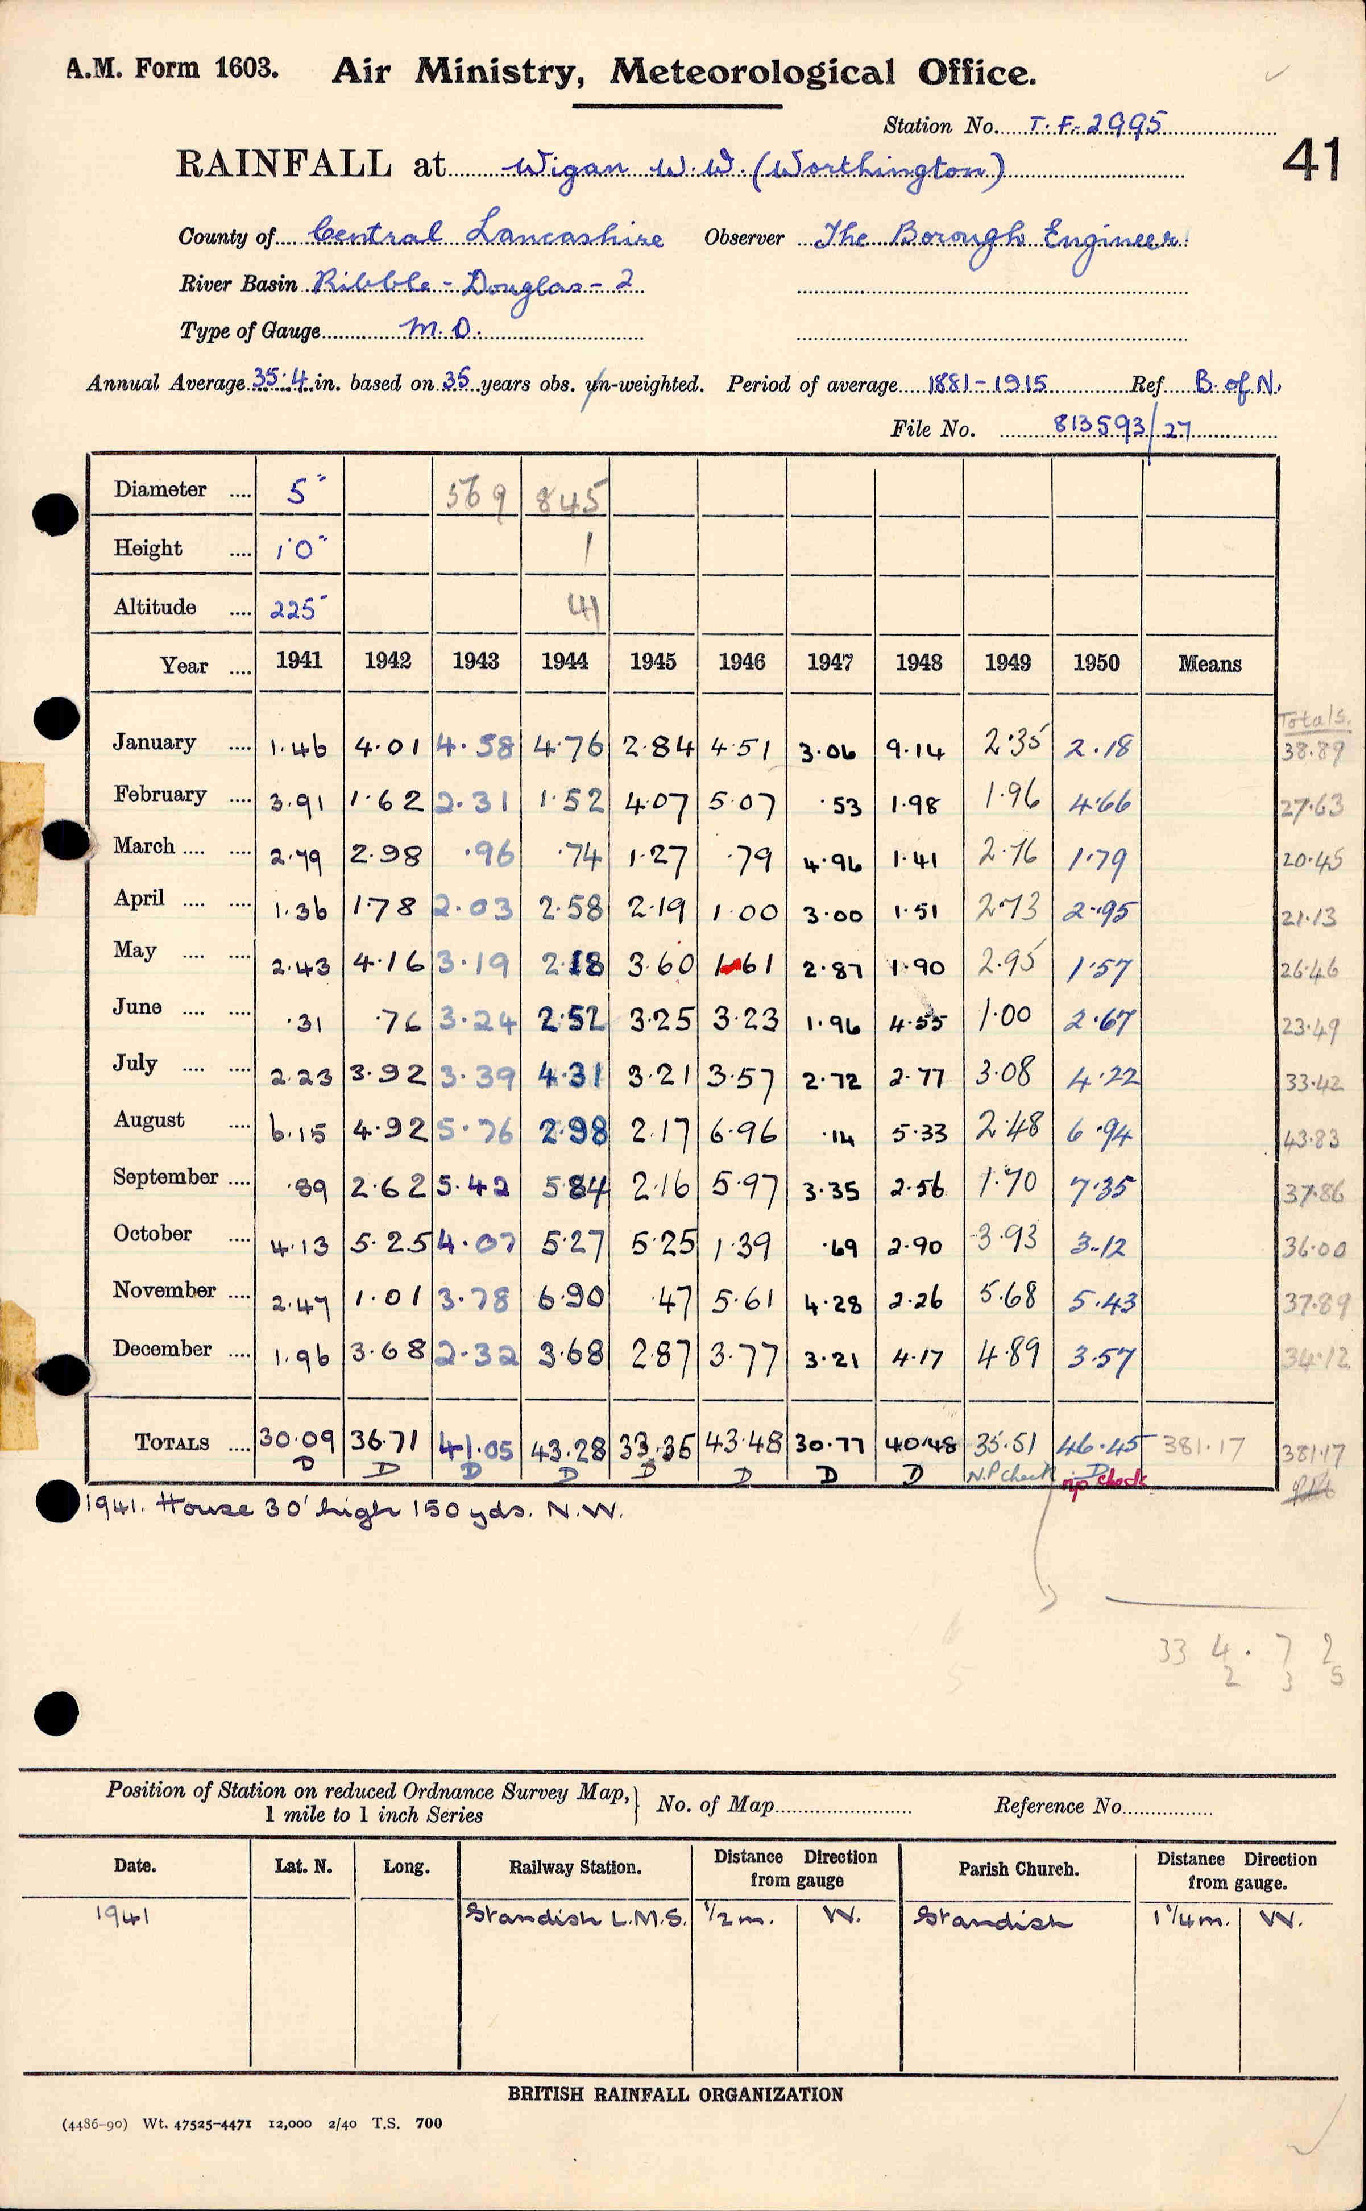 A.M. Form 1603. Air Ministry, Meteorological Office.
Station No. T.F. 2995
41
RAINFALL at Wigan W.W. (Worthington)
County of Central Lancashire Observer The Borough Engineer
River Basin Ribble - Douglas - 2
Type of Gauge M.O.
Annual Average 35.4 in. based on 35 years obs. un-weighted. Period of average 1881-1915 Ref B. of N.
File No. 813593/27
Diameter .... 5" 569 845
Height .... 1'0" 1
Altitude .... 225' 41
Year .... 1941 1942 1943 1944 1945 1946 1947 1948 1949 1950 Means
Totals.
January .... 1.46 4.01 4.58 4.76 2.84 4.51 3.06 9.14 2.35 2.18 38.89
February .... 3.91 1.62 2.31 1.52 4.07 5.07 .53 1.98 1.96 4.66 27.63
March .... .... 2.79 2.98 .96 .74 1.27 .79 4.96 1.41 2.76 1.79 20.45
April .... .... 1.36 1.78 2.03 2.58 2.19 1.00 3.00 1.51 2.73 2.95 21.13
May .... .... 2.43 4.16 3.19 2.18 3.60 1.61 2.87 1.90 2.95 1.57 26.46
June .... .... .31 .76 3.24 2.52 3.25 3.23 1.96 4.55 1.00 2.67 23.49
July .... .... 2.23 3.92 3.39 4.31 3.21 3.57 2.72 2.77 3.08 4.22 33.42
August .... 6.15 4.92 5.76 2.98 2.17 6.96 .14 5.33 2.48 6.94 43.83
September .... .89 2.62 5.42 5.84 2.16 5.97 3.35 2.56 1.70 7.35 37.86
October .... 4.13 5.25 4.07 5.27 5.25 1.39 .69 2.90 3.93 3.12 36.00
November .... 2.47 1.01 3.78 6.90 .47 5.61 4.28 2.26 5.68 5.43 37.89
December .... 1.96 3.68 2.32 3.68 2.87 3.77 3.21 4.17 4.89 3.57 34.12
TOTALS .... 30.09 36.71 41.05 43.28 33.35 43.48 30.77 40.48 35.51 46.45 381.17 381.17
D D D D D D D D N.P check D
np check
1941. House 30' high 150 yds. N.W.
33 4. 7 2
2 3 5
Position of Station on reduced Ordnance Survey Map,
1 mile to 1 inch Series
No. of Map Reference No.
Date. Lat. N. Long. Railway Station. Distance Direction from gauge Parish Church. Distance Direction from gauge.
1941 Standish L.M.S. 1/2 m. W. Standish 1 1/4 m. W.
BRITISH RAINFALL ORGANIZATION
(4486-90) Wt. 47525-4471 12,000 2/40 T.S. 700